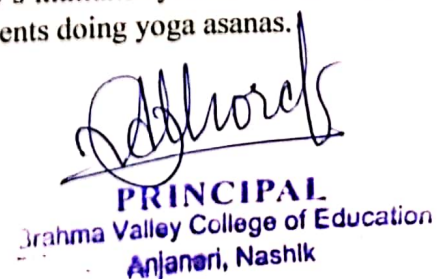 ents doing yoga asanas.
PRINCIPAL
Brahma Valley College of Education
Anjaneri, Nashik